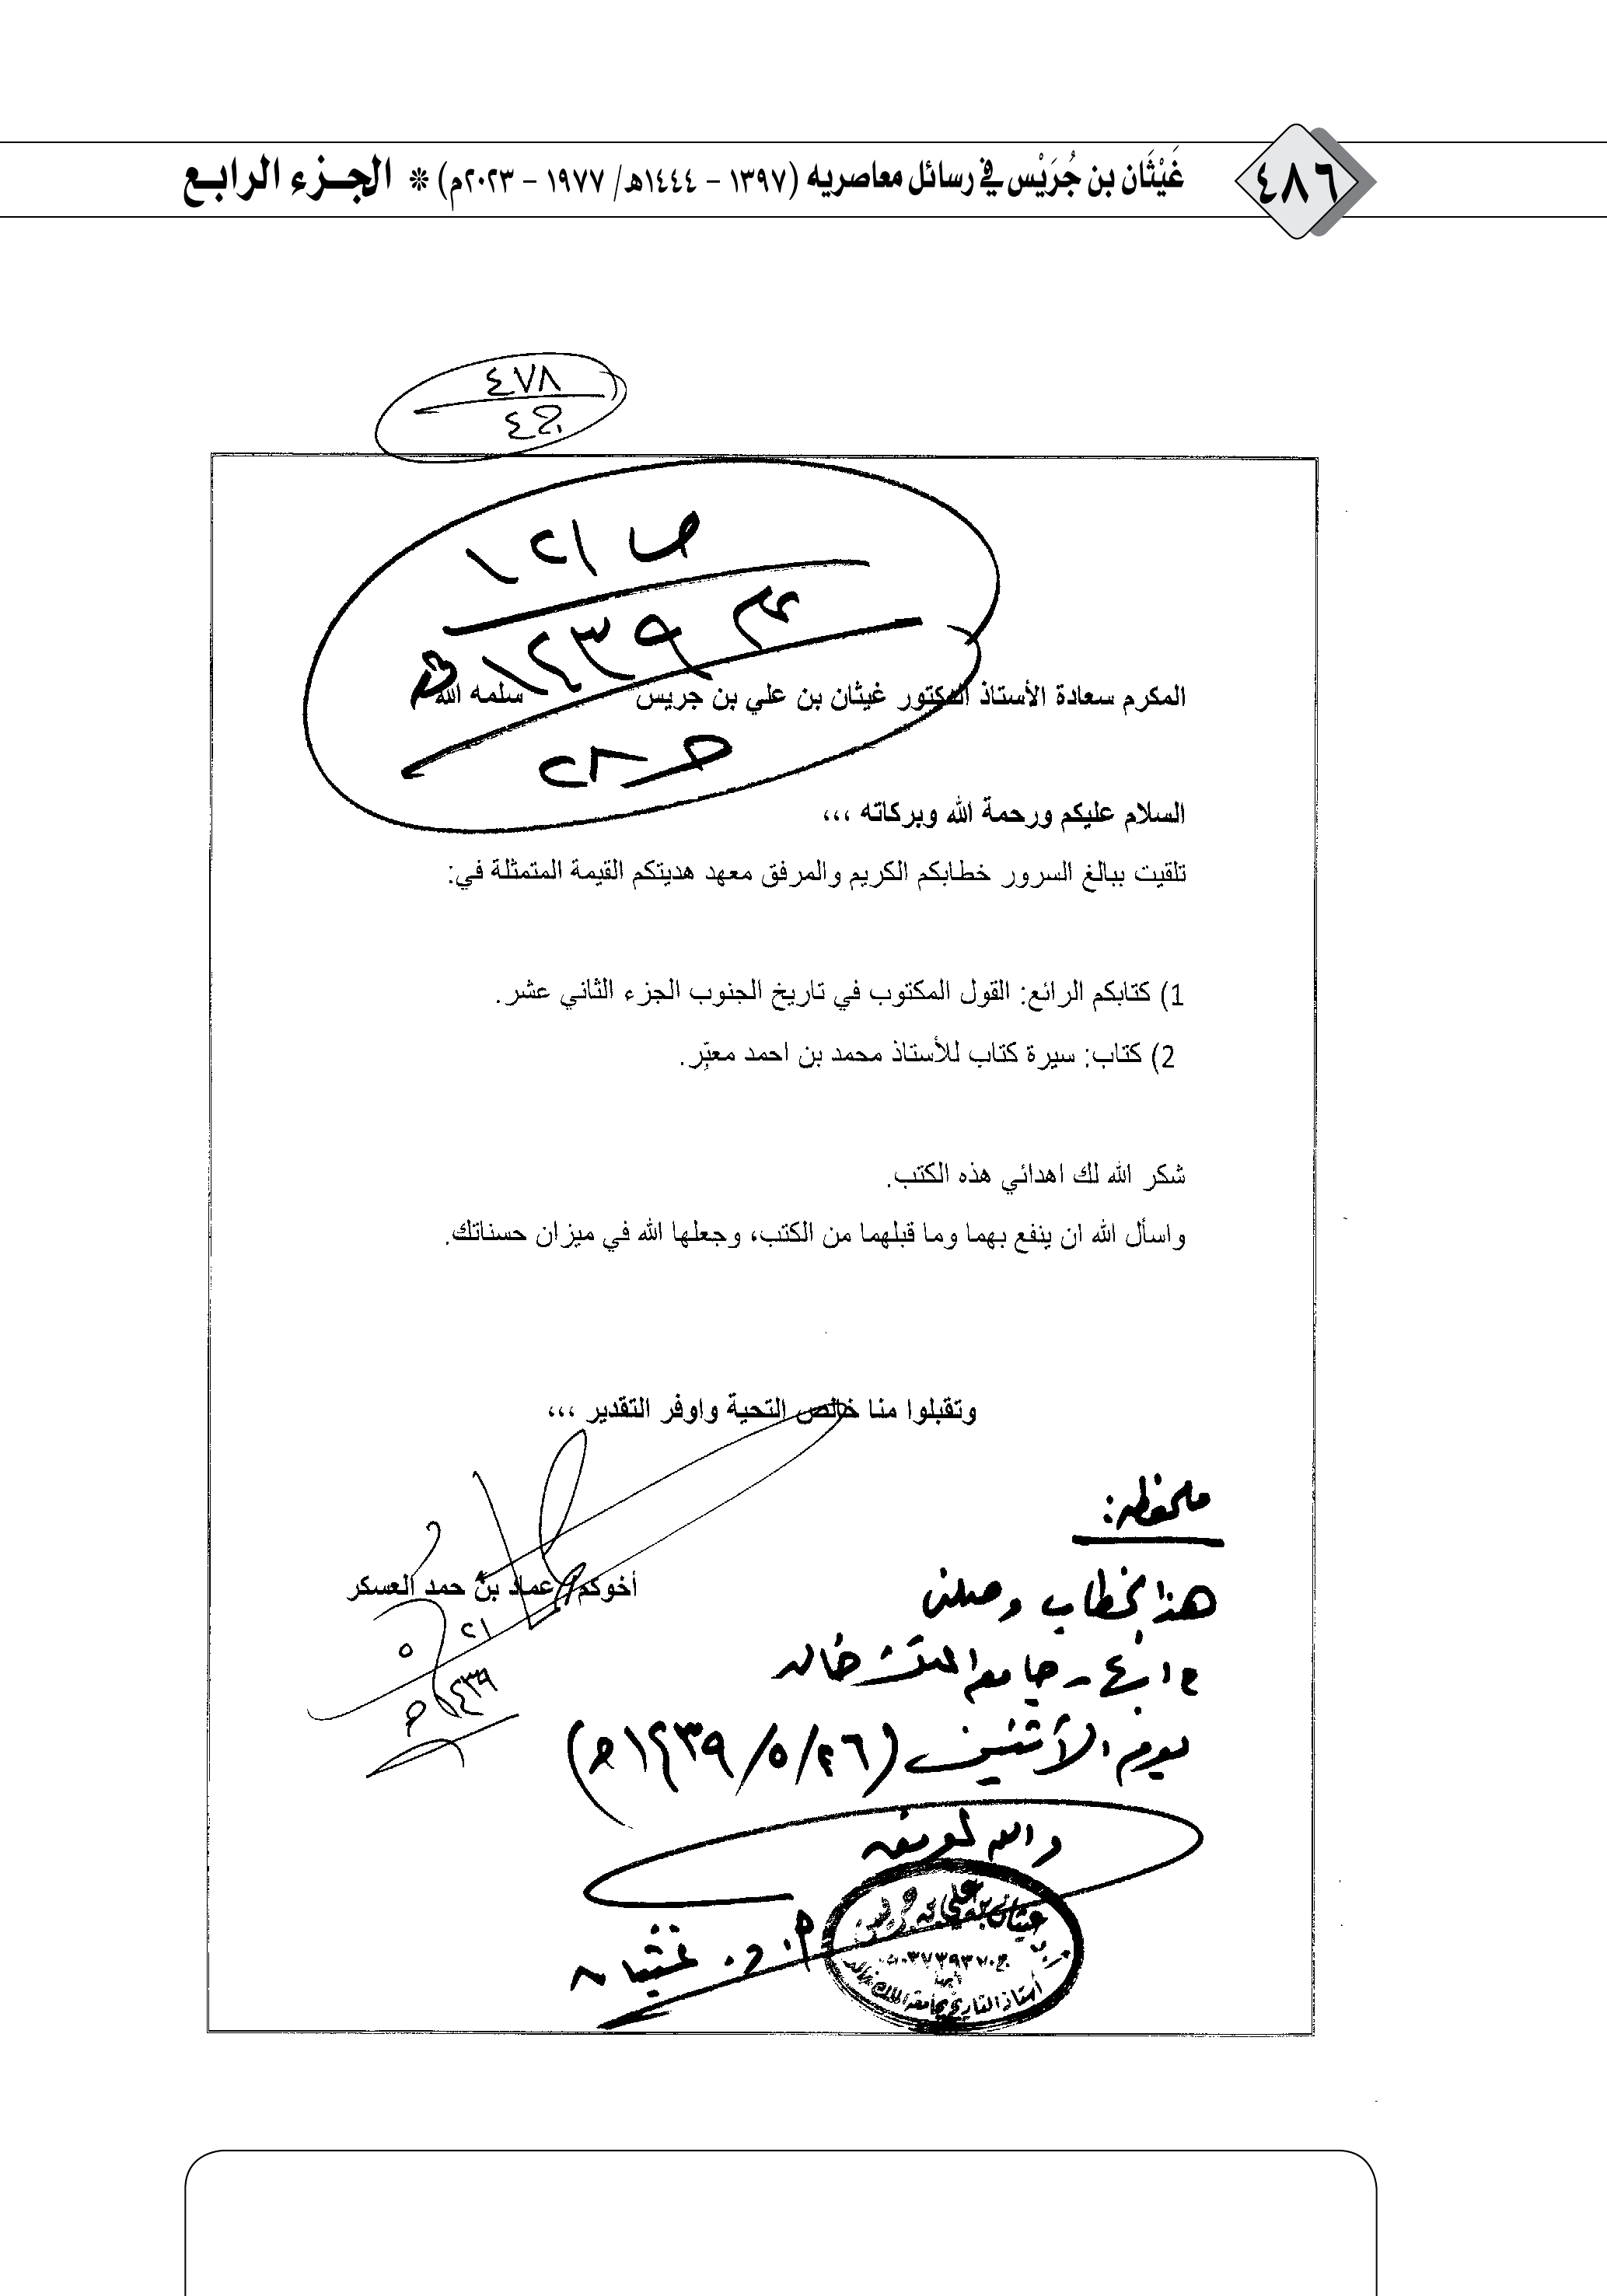 ٤٨٦
غَيْثَان بن جُرَيْس في رسائل معاصريه (١٣٩٧ – ١٤٤٤هـ/ ١٩٧٧ – ٢٠٢٣م) * الجزء الرابع
٤٧٨
ج٤
ص ١٢١
١٤٣٩هـ
المكرم سعادة الأستاذ الدكتور غيثان بن علي بن جريس سلمه الله
السلام عليكم ورحمة الله وبركاته ،،،
تلقيت ببالغ السرور خطابكم الكريم والمرفق معهد هديتكم القيمة المتمثلة في:
1) كتابكم الرائع: القول المكتوب في تاريخ الجنوب الجزء الثاني عشر.
2) كتاب: سيرة كتاب للأستاذ محمد بن احمد معبِّر.
شكر الله لك اهدائي هذه الكتب.
واسأل الله ان ينفع بهما وما قبلهما من الكتب، وجعلها الله في ميزان حسناتك.
وتقبلوا منا خالص التحية واوفر التقدير ،،،
أخوكم/ عماد بن حمد العسكر
٢١
٥
١٤٣٩هـ
ملحفظه:
هذا لخطاب وصلني
جامعة الملك خالد
يوم الأثنين (٢٦/٥/١٤٣٩هـ)
والله لموفق
أ.د. غيثان
غيثان بن علي بن جريس
أبها
أستاذ التاريخ بجامعة الملك خالد